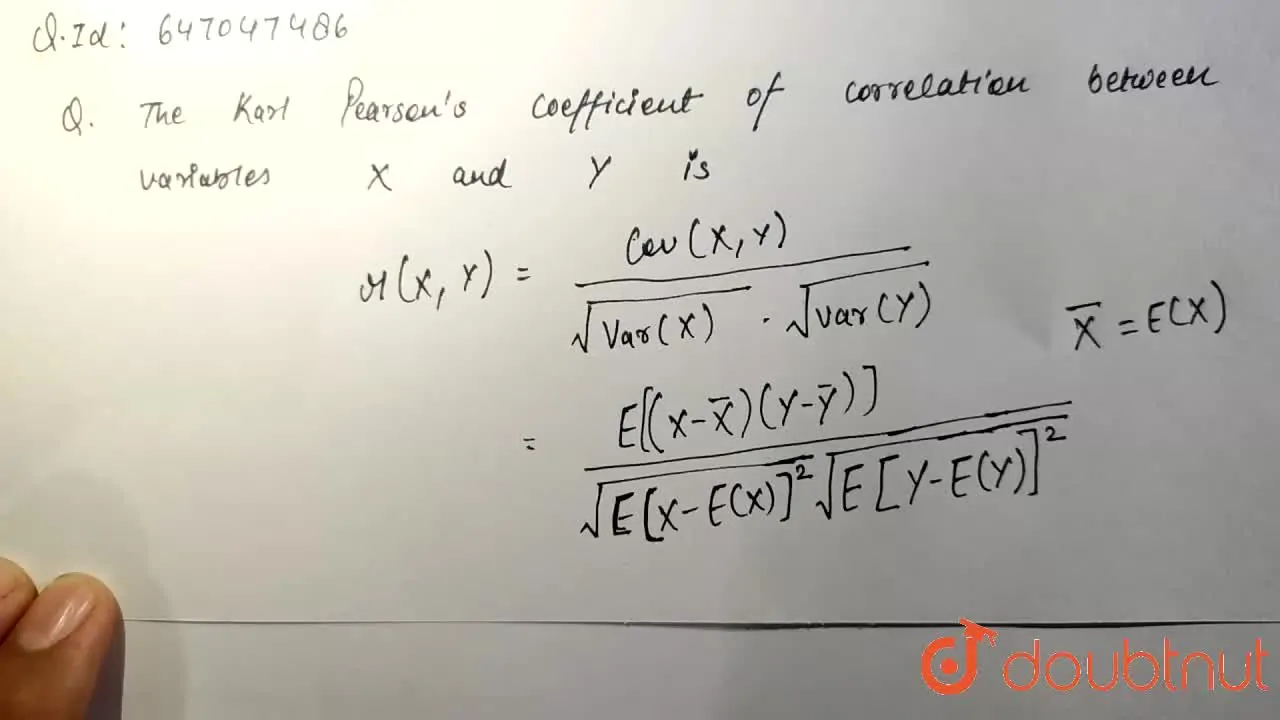 Q.Id: 647047486
Q. The Karl Pearson's coefficient of correlation between
variables X and Y is
r(X, Y) = Cov(X, Y) / √Var(X) · √Var(Y)
X̄ = E(X)
= E[(X-X̄)(Y-Ȳ)] / √E[X-E(X)]² √E[Y-E(Y)]²
doubtnut